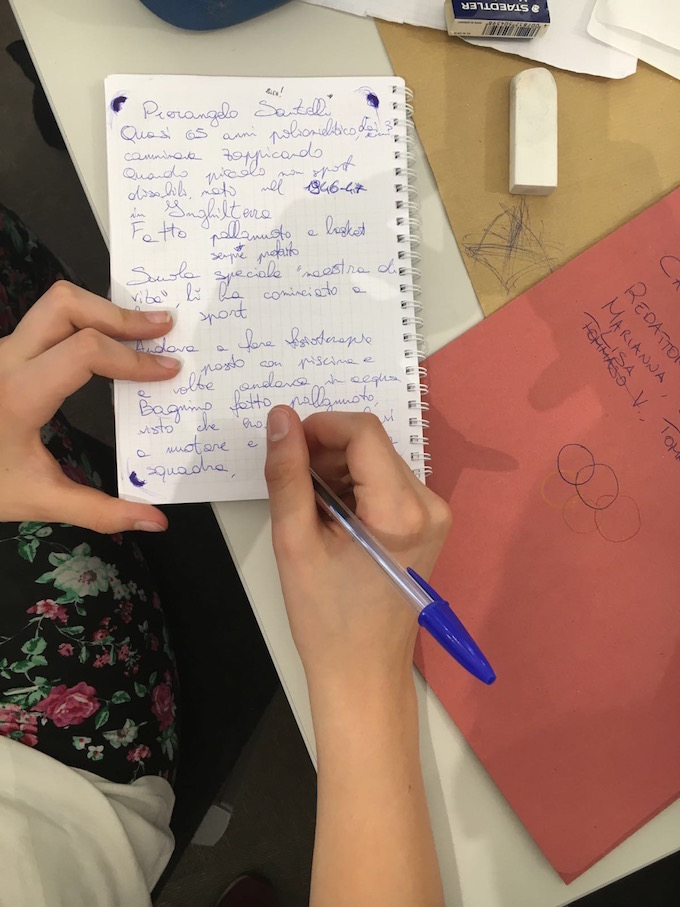 STAEDTLER
Pierangelo Santelli
Quasi 65 anni poliomielitico, dai 3
camminava zoppicando
Quando piccolo non sport
disabili, nato nel 1946-47
in Inghilterra
Fatto pallanuoto e basket
sempre
Scuola speciale "maestra di
vita", lì ha cominciato a
sport
Andava a fare fisioterapia
posto con piscina e
e volte andava in acqua
Bagnino fatto pallanuoto,
visto che
a nuotare e
squadra.
REDATTO
MARIANNA,
LISA
TOMMASO V.
TOM